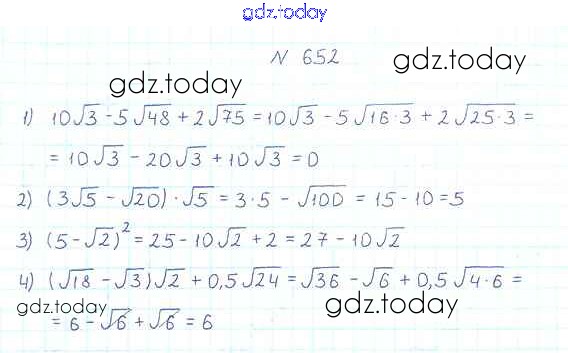 gdz.today
N 652
gdz.today
gdz.today
1) 10√3 - 5√48 + 2√75 = 10√3 - 5√16·3 + 2√25·3 =
= 10√3 - 20√3 + 10√3 = 0
2) (3√5 - √20)·√5 = 3·5 - √100 = 15 - 10 = 5
3) (5 - √2)² = 25 - 10√2 + 2 = 27 - 10√2
4) (√18 - √3)√2 + 0,5√24 = √36 - √6 + 0,5√4·6 =
gdz.today
gdz.today
= 6 - √6 + √6 = 6